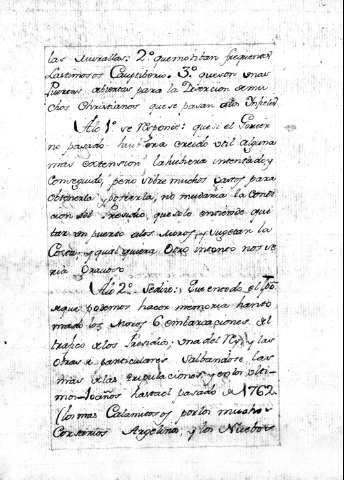 las Murallas: 2.º que motiban frequentes
Lastimosos Cauptiberios. 3.º que son unas
Puertas abiertas para la Desercion de mu
chos Christianos que se pasan a los Infieles
A lo 1.º se Responde: que si el Govier
no pasado hubiera creido util alguna
mas extension la hubiera intentado, y
conseguido, pero sobre muchos gastos para
obtenerla y poseerla, no mudaria la Condi
cion del Presidio, que solo entiende qui
tar un puerto a los Moros, y sugetar la
Costa, y qualquiera Otro intento nos se
ria Gravoso
A lo 2.º se dice: Que en todo el tpo
que podemos hacer memoria han to
mado los Moros 6 embarcaciones del
trafico de los Presidios, una del Rey, y las
otras de particulares salbandose las
mas de las tripulaciones, y en los ulti
mos años hasta el pasado de 1762
(los mas Calamitosos por los muchos
Corsarios Argelinos, y los Nuebos